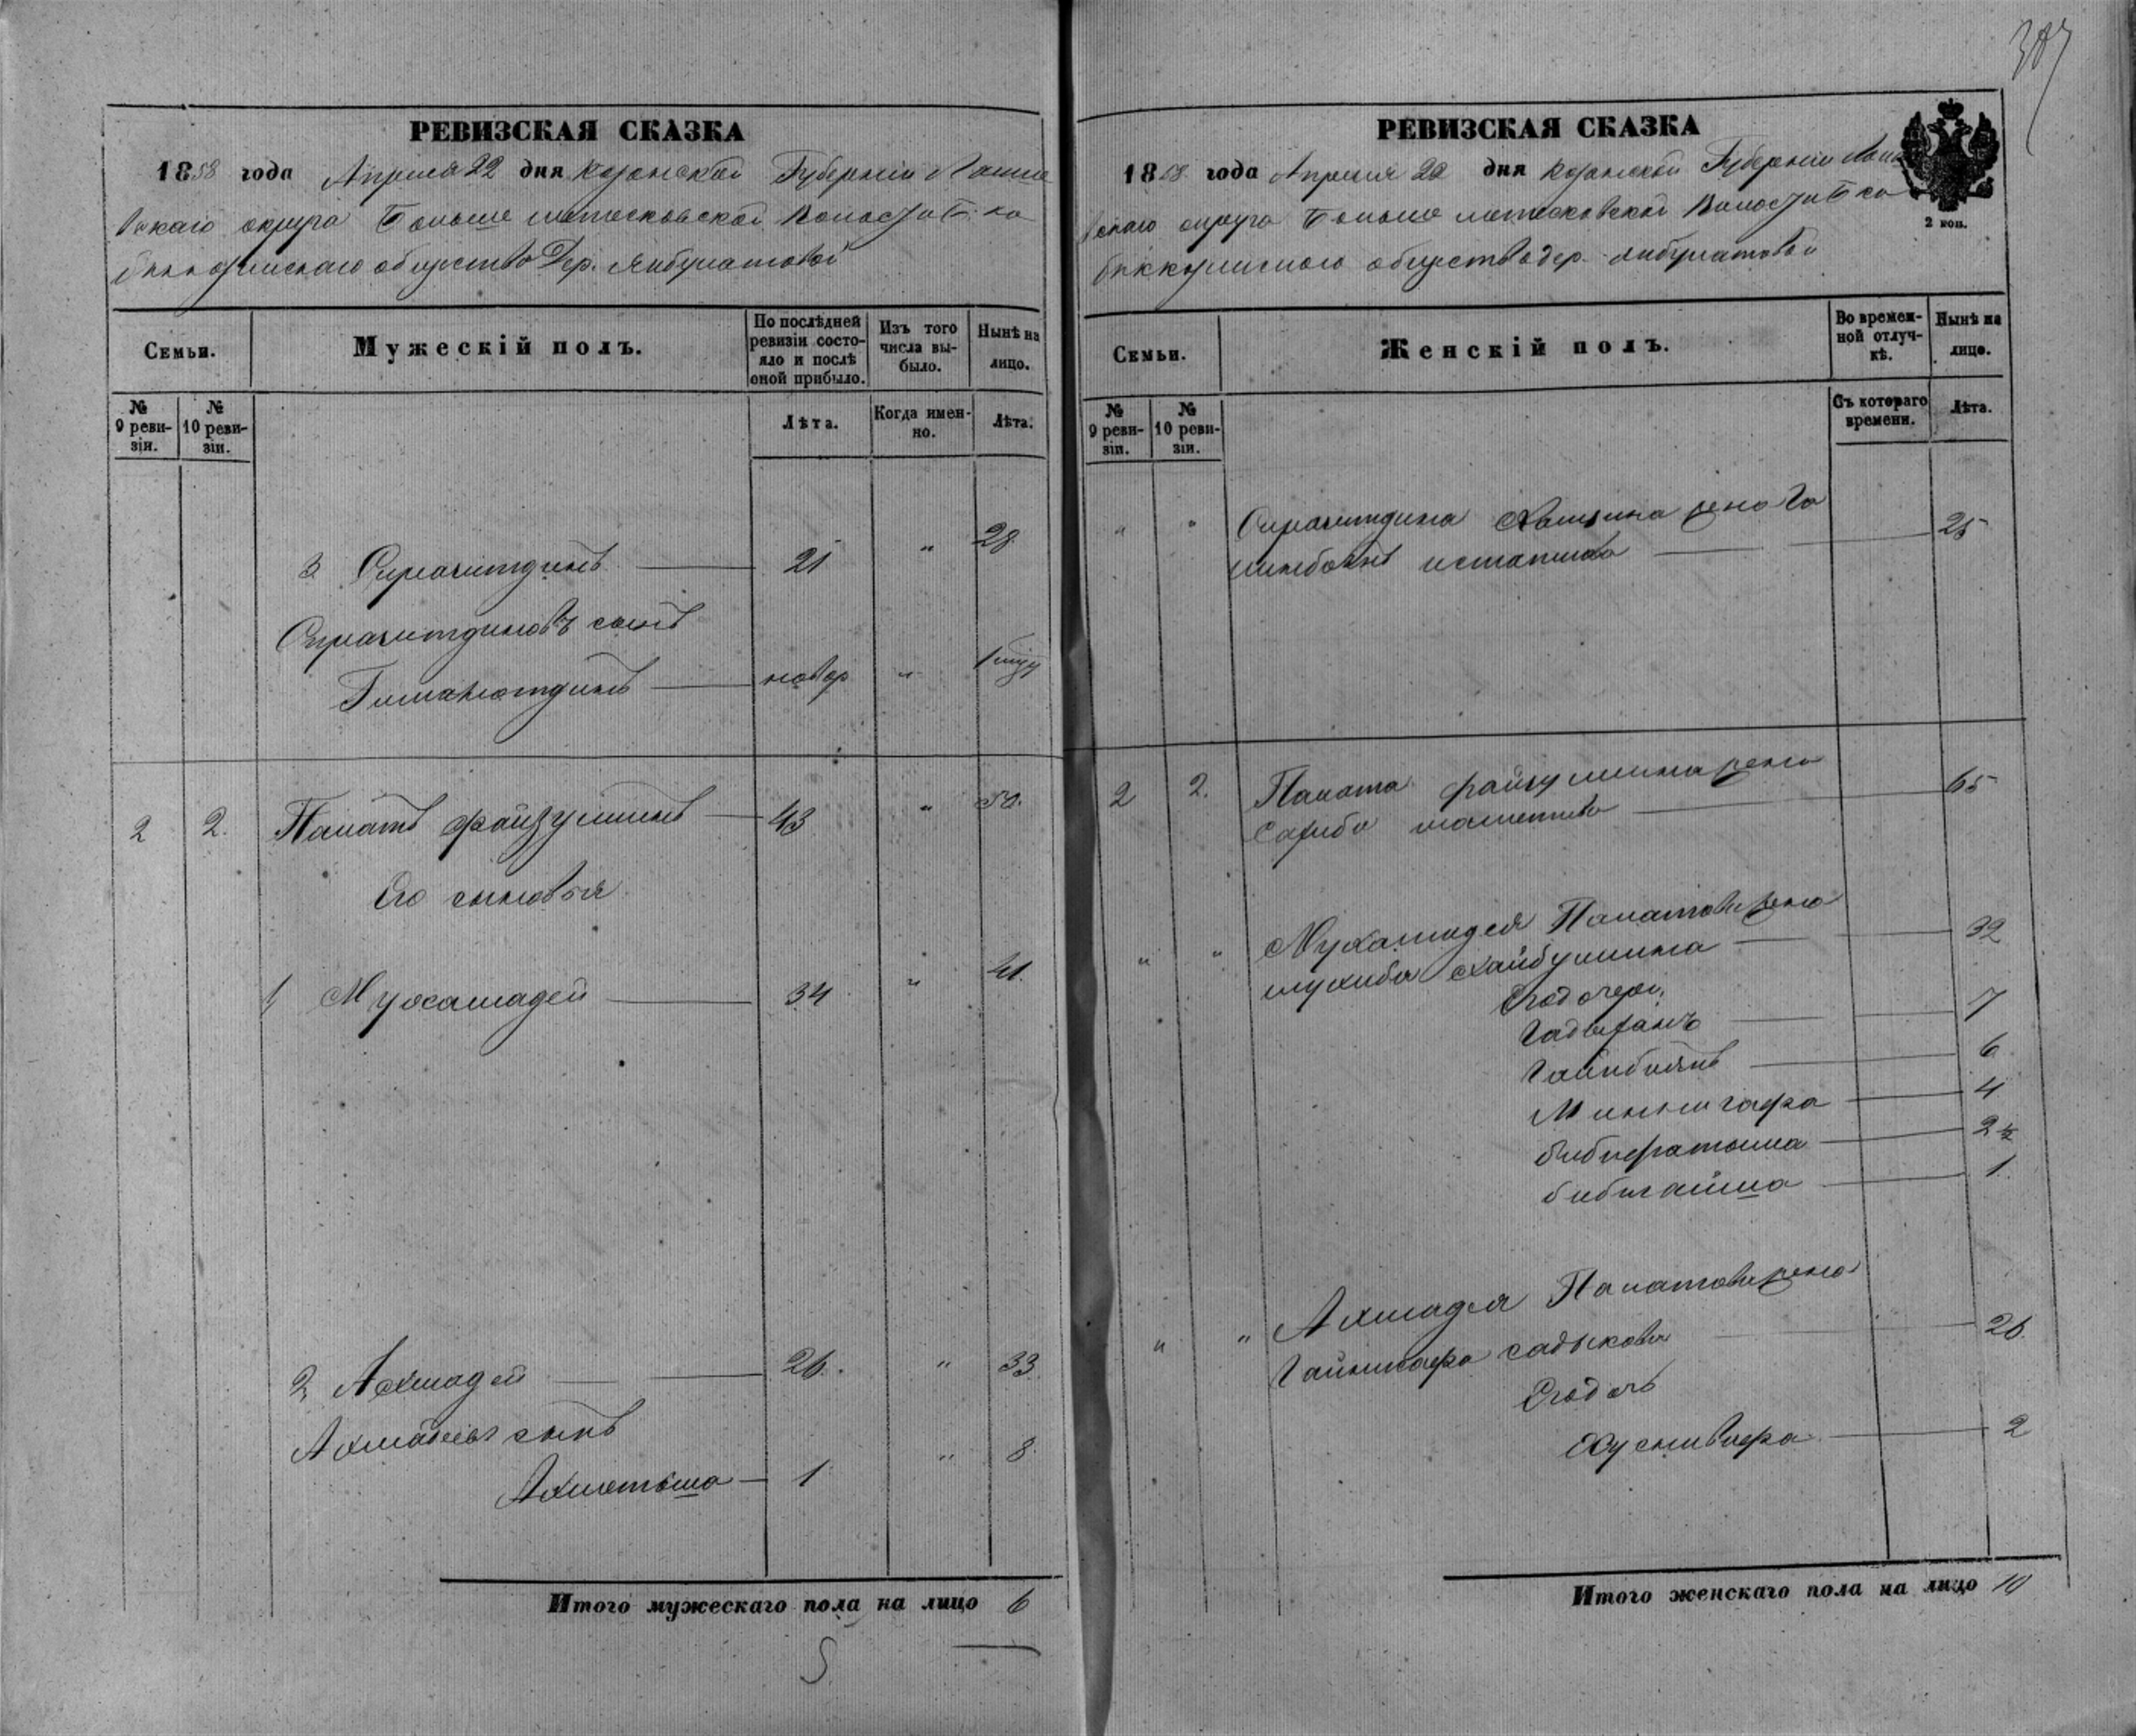 387
РЕВИЗСКАЯ СКАЗКА
1858 года Апреля 22 дня Казанской Губернiи Лаише
вскаго округа Больше метесковской Волости Б: ка
биккозинскаго общества Дер. Янбулатовой
Семьи.
Мужескiй полъ.
По послѣдней ревизiи состояло и послѣ оной прибыло.
Изъ того числа выбыло.
Нынѣ на лицо.
№ 9 ревизiи.
№ 10 ревизiи.
Лѣта.
Когда именно.
Лѣта.
3. Сиразитдинъ 21 " 28
Сиразитдиновъ сынъ
Гималютдинъ новор " 1
2 2. Палатъ Файзуллинъ 43 " 50.
Его сыновья
1, Мухамадей 34 " 41.
2, Ахмадей 26. " 33
Ахмадеевъ сынъ
Ахметьша 1 " 8.
Итого мужескаго пола на лицо 6
РЕВИЗСКАЯ СКАЗКА
1858 года Апреля 22 дня Казанской Губернiи Лаи
вскаго округа Больше метесковской Волости Б ка
биккозинскаго общества дер. Янбулатовой
2 коп.
Семьи.
Женскiй полъ.
Во временной отлучкѣ.
Нынѣ на лицо.
№ 9 ревизiи.
№ 10 ревизiи.
Съ котораго времени.
Лѣта.
" " Сиразитдина жена
25
2 2. Палата файзуллина жена
65
" " Мухамадея Палатова жена
Хайбуллина 32
Его дочери
7
6
4
бибифатыма 2 ½
бибигайша 1.
" " Ахмадея Палатова жена
садыкова 26.
Его дочь
2
Итого женскаго пола на лицо 10